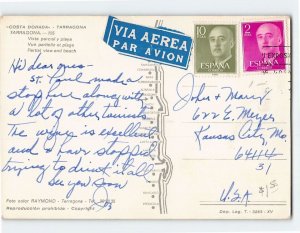 "COSTA DORADA" - TARRAGONA
TARRAGONA - 155
Vista parcial y playa
Vue partielle et plage
Partial view and beach
VIA AEREA
PAR AVION
10
ESPAÑA
2
PTAS
ESPAÑA
Hi dear ones -
St. Paul made a
stop here along with
a lot of other tourists
The wine is excellent
and I have stopped
trying to drink it all
See you soon
John & Mary
622 E. Meyer
Kansas City, Mo
64141
31
U.S.A
$1.5
Foto color RAYMOND - Tarragona - Tel.
Reproducción prohibida - Copyright
Dep. Leg. T. - 3265 - XV